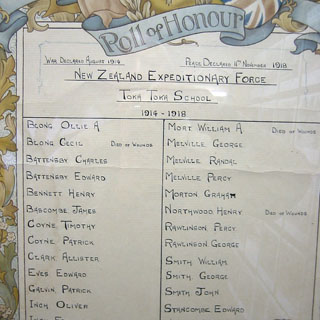 Roll of Honour
War Declared August 1914 Peace Declared 11th November 1918
New Zealand Expeditionary Force
Toka Toka School
1914 - 1918
Blong Ollie A
Blong Cecil Died of Wounds
Battensby Charles
Battensby Edward
Bennett Henry
Bascombe James
Coyne Timothy
Coyne Patrick
Clark Allister
Eves Edward
Galvin Patrick
Inch Oliver
Inch
Mort William A Died of Wounds
Melville George
Melville Randal
Melville Percy
Morton Graham
Northwood Henry Died of Wounds
Rawlinson Percy
Rawlinson George
Smith William
Smith George
Smith John
Stancombe Edward